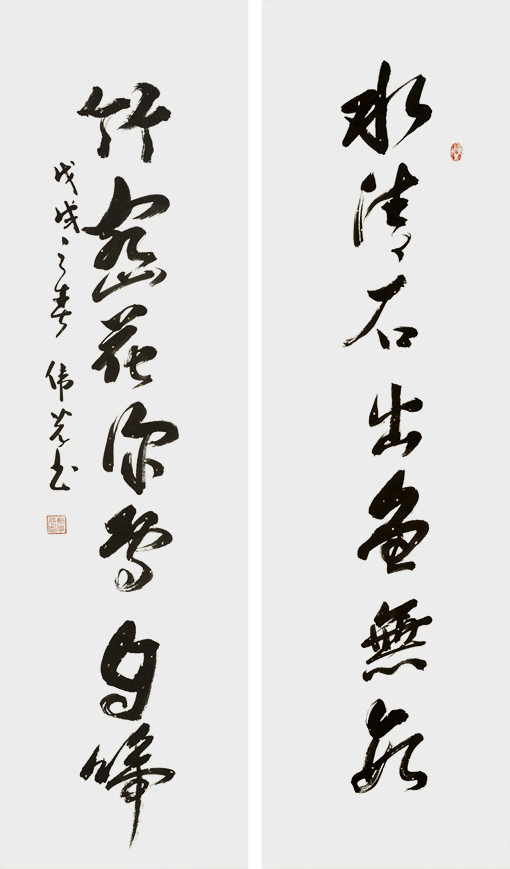 水清石出魚無數
竹密花深鳥自啼
戊戌之春 伟光书